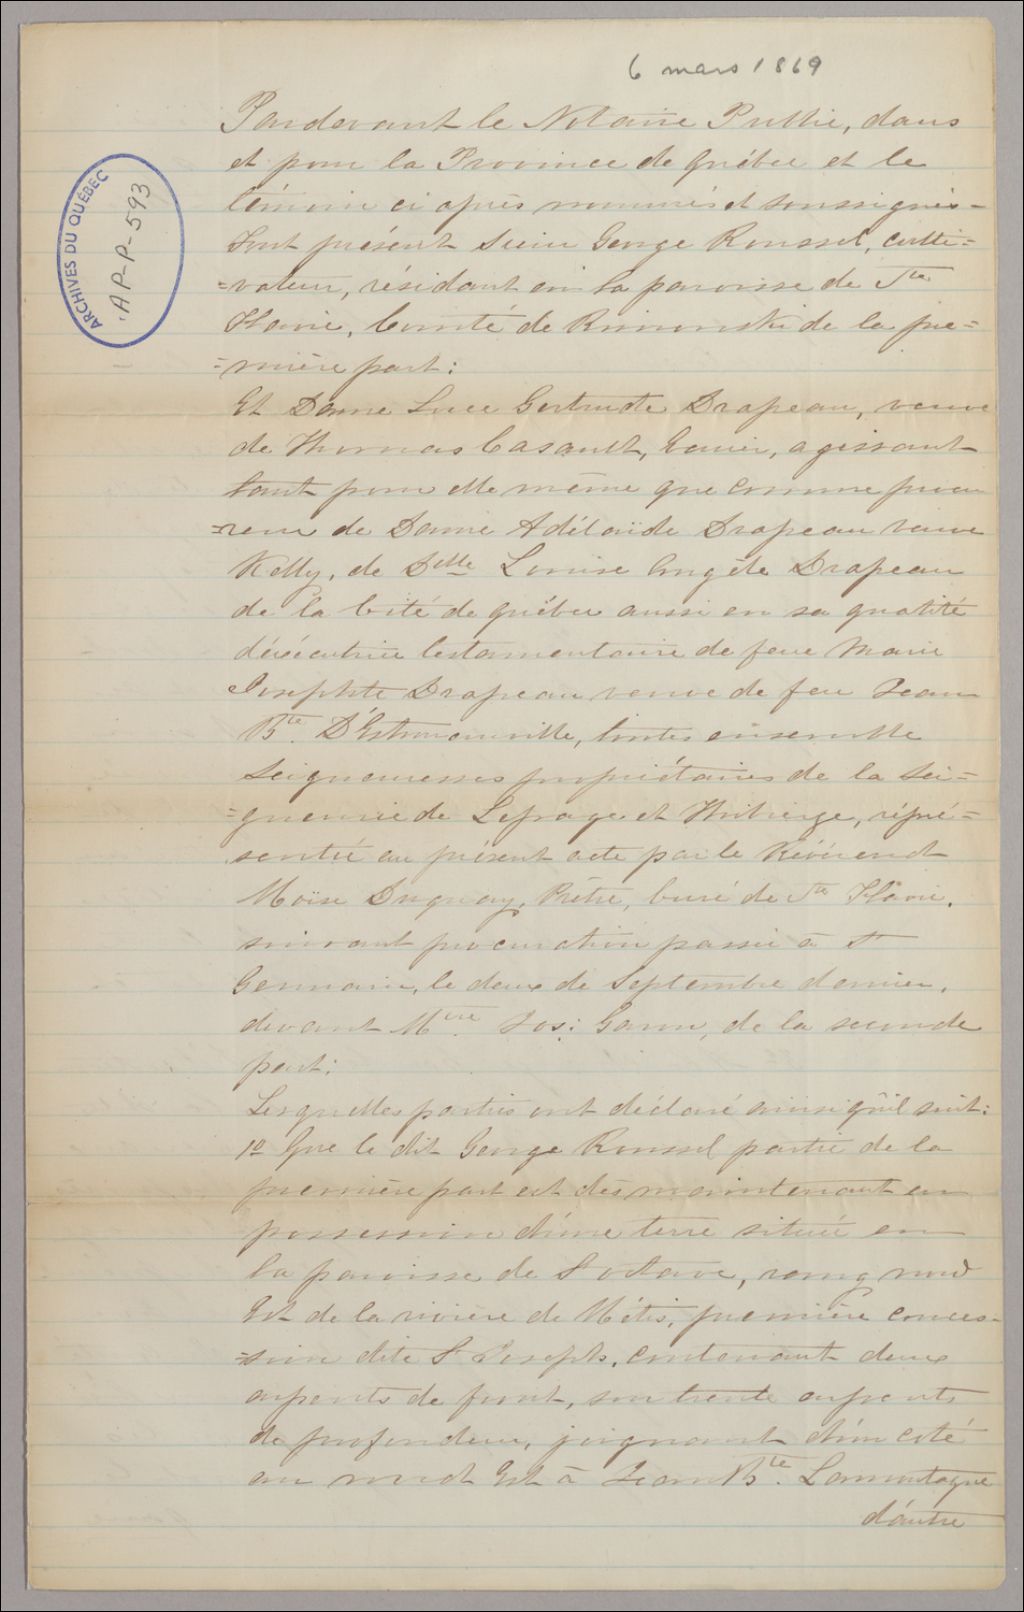 6 mars 1869
ARCHIVES DU QUÉBEC
AP-P-593
Pardevant le Notaire Public, dans
et pour la Province de Québec et le
témoin ci après nommés et soussignés-
Sont présent Sieur George Roussel, culti=
=vateur, résidant en la paroisse de Ste
Flavie, Comté de Rimouski de la pre=
=mière part:
Et Dame Luce Gertrude Drapeau, veuve
de Thomas Casault, Ecuier, agissant
tant pour elle même que comme procu
=reur de Dame Adélaïde Drapeau veuve
Kelly, de Delle Louise Angèle Drapeau
de la Cité de Québec aussi en sa qualité
d'éxécutrice testamentaire de feue Marie
Josephte Drapeau veuve de feu Jean
Bte. D'Estimauville, toutes ensemble
Seigneuresses propriétaires de la Sei=
=gneurie de Lepage et Thibierge, répré=
sentée au présent acte par le Révérend
Moïse Duguay, Prêtre, Curé de Ste Flavie,
suivant procuration passée à St
Germain, le deux de Septembre dernier,
devant Mtre. Jos: Garon, de la seconde
part:
Lesquelles parties ont déclaré ainsi qu'il suit:
1o Que le dit George Roussel partie de la
première part est dès maintenant en
possession d'une terre située en
la paroisse de St Octave, rang nord
Est de la rivière de Métis, première conces-
=sion dite St Joseph, contenant deux
arpents de front, sur trente arpents
de profondeur, joignant d'un coté
au nord Est à Jean Bte. Lamontagne
d'autre